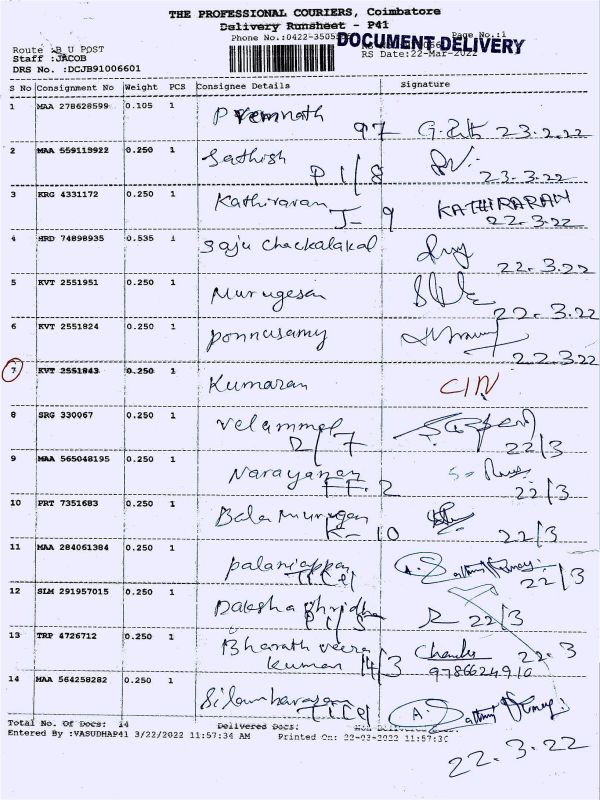 THE PROFESSIONAL COURIERS, Coimbatore
Delivery Runsheet - P41
Phone No.:0422-3505 Page No.:1
DOCUMENT DELIVERY
Route :B U POST
Staff :JACOB RS Date:22-Mar-2022
DRS No. :DCJB91006601
S No Consignment No Weight PCS Consignee Details Signature
1 MAA 278628599 0.105 1 Premnath 97 23.2.22
2 MAA 559119922 0.250 1 Sathish P 1/8 23.3.22
3 KRG 4331172 0.250 1 Kathiravan J- 9 KATHIRARAN 22.3.22
4 HRD 74898935 0.535 1 Saju Chackalakal 22.3.22
5 KVT 2551951 0.250 1 Murugesan 22.3.22
6 KVT 2551824 0.250 1 Ponnusamy 22.3.22
7 KVT 2551843 0.250 1 Kumaran CIN
8 SRG 330067 0.250 1 Velammal D/7 22/3
9 MAA 565048195 0.250 1 Narayanan FF. 2 22/3
10 PRT 7351683 0.250 1 Bala Murugan K- 10 22/3
11 MAA 284061384 0.250 1 Palaniappan 22/3
12 SLM 291957015 0.250 1 22/3
13 TRP 4726712 0.250 1 Bharath Veera Kumar 14/3 22.3
9786624910
14 MAA 564258282 0.250 1 Silambarasan
Total No. Of Docs: 14 Delivered Docs:
Entered By :VASUDHAP41 3/22/2022 11:57:34 AM Printed On: 22-03-2022 11:57:3
22.3.22